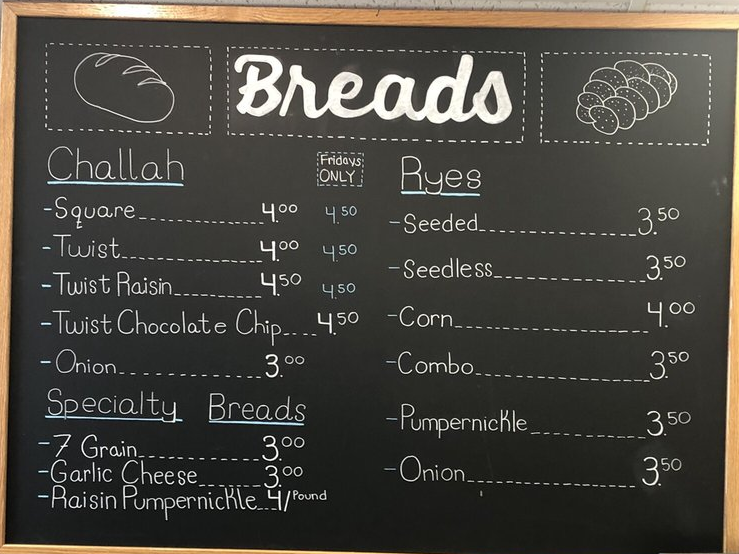 Breads
Challah
Fridays
ONLY
-Square 4.00 4.50
-Twist 4.00 4.50
-Twist Raisin 4.50 4.50
-Twist Chocolate Chip 4.50
-Onion 3.00
Specialty Breads
-7 Grain 3.00
-Garlic Cheese 3.00
-Raisin Pumpernickle 4/Pound
Ryes
-Seeded 3.50
-Seedless 3.50
-Corn 4.00
-Combo 3.50
-Pumpernickle 3.50
-Onion 3.50